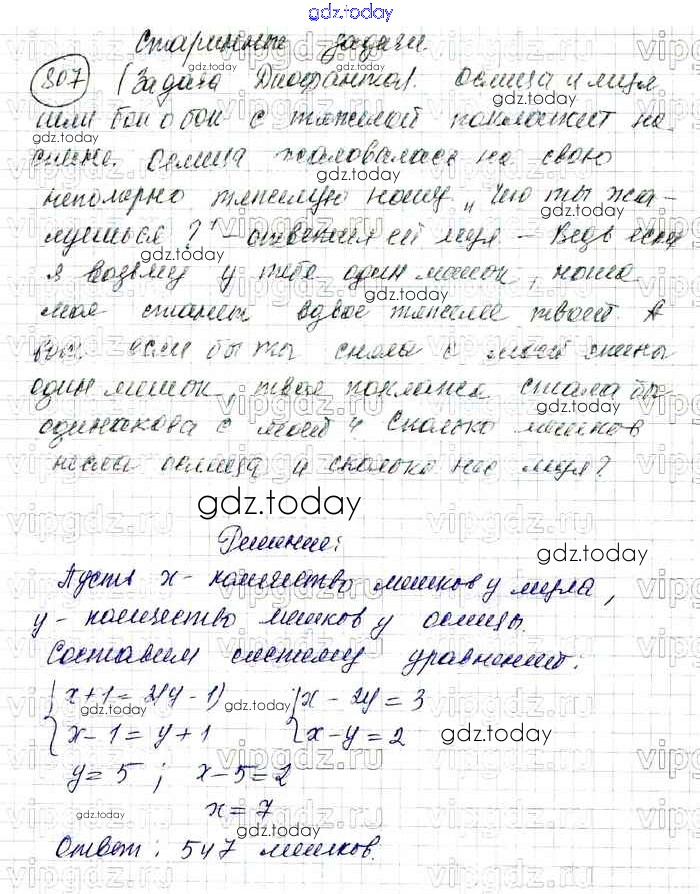 gdz.today
Старинные задачи.
807 (Задача Диофанта). Ослица и мул
шли бок о бок с тяжелой поклажей на
спине. Ослица жаловалась на свою
непомерно тяжелую ношу. „Что ты жа-
луешься?" – ответил ей мул – Ведь если
я возьму у тебя один мешок, ноша
моя станет вдвое тяжелее твоей. А
вот если бы ты сняла с моей спины
один мешок, твоя поклажа стала бы
одинакова с моей". Сколько мешков
несла ослица и сколько нес мул?
gdz.today
Решение:
Пусть x – количество мешков у мула,
y – количество мешков у ослицы.
Составим систему уравнений:
{ x + 1 = 2(y - 1) { x - 2y = 3
{ x - 1 = y + 1 { x - y = 2
y = 5 ; x - 5 = 2
x = 7
Ответ: 5 и 7 мешков.